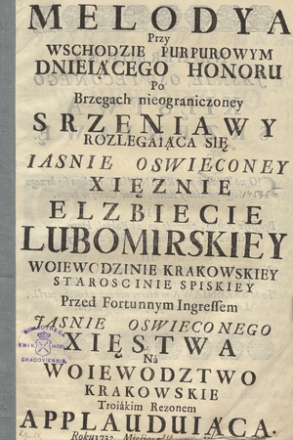 MELODYA
Przy
WSCHODZIE PURPUROWYM
DNIEIĄCEGO HONORU
Po
Brzegach nieograniczoney
SRZENIAWY
ROZLEGAIĄCA SIĘ
IASNIE OSWIECONEY
XIĘZNIE
ELZBIECIE
LUBOMIRSKIEY
WOIEWODZINIE KRAKOWSKIEY
STAROSCINIE SPISKIEY
Przed Fortunnym Ingressem
JASNIE OSWIECONEGO
XIĘSTWA
Ná
WOIEWODZTWO
KRAKOWSKIE
Troiákim Rezonem
APPLAUDUIĄCA.
Roku 1732